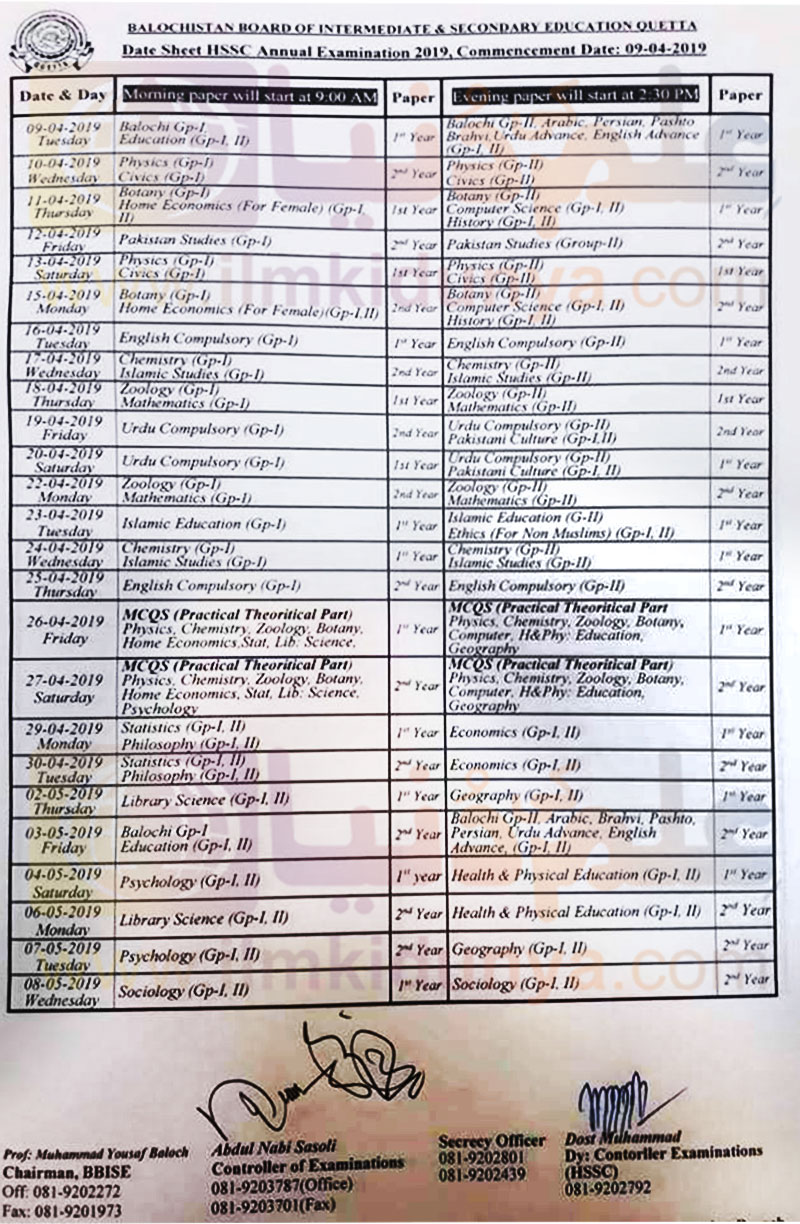 BALOCHISTAN BOARD OF INTERMEDIATE & SECONDARY EDUCATION QUETTA
Date Sheet HSSC Annual Examination 2019, Commencement Date: 09-04-2019
Date & Day Morning paper will start at 9:00 AM Paper Evening paper will start at 2:30 PM Paper
09-04-2019 Tuesday Balochi Gp-I, Education (Gp-I, II) 1st Year Balochi Gp-II, Arabic, Persian, Pashto Brahvi, Urdu Advance, English Advance (Gp-I, II) 1st Year
10-04-2019 Wednesday Physics (Gp-I) Civics (Gp-I) 2nd Year Physics (Gp-II) Civics (Gp-II) 2nd Year
11-04-2019 Thursday Botany (Gp-I) Home Economics (For Female) (Gp-I, II) 1st Year Botany (Gp-II) Computer Science (Gp-I, II) History (Gp-I, II) 1st Year
12-04-2019 Friday Pakistan Studies (Gp-I) 2nd Year Pakistan Studies (Group-II) 2nd Year
13-04-2019 Saturday Physics (Gp-I) Civics (Gp-I) 1st Year Physics (Gp-II) Civics (Gp-II) 1st Year
15-04-2019 Monday Botany (Gp-I) Home Economics (For Female)(Gp-I,II) 2nd Year Botany (Gp-II) Computer Science (Gp-I, II) History (Gp-I, II) 2nd Year
16-04-2019 Tuesday English Compulsory (Gp-I) 1st Year English Compulsory (Gp-II) 1st Year
17-04-2019 Wednesday Chemistry (Gp-I) Islamic Studies (Gp-I) 2nd Year Chemistry (Gp-II) Islamic Studies (Gp-II) 2nd Year
18-04-2019 Thursday Zoology (Gp-I) Mathematics (Gp-I) 1st Year Zoology (Gp-II) Mathematics (Gp-II) 1st Year
19-04-2019 Friday Urdu Compulsory (Gp-I) 2nd Year Urdu Compulsory (Gp-II) Pakistani Culture (Gp-I,II) 2nd Year
20-04-2019 Saturday Urdu Compulsory (Gp-I) 1st Year Urdu Compulsory (Gp-II) Pakistani Culture (Gp-I, II) 1st Year
22-04-2019 Monday Zoology (Gp-I) Mathematics (Gp-I) 2nd Year Zoology (Gp-II) Mathematics (Gp-II) 2nd Year
23-04-2019 Tuesday Islamic Education (Gp-I) 1st Year Islamic Education (G-II) Ethics (For Non Muslims) (Gp-I, II) 1st Year
24-04-2019 Wednesday Chemistry (Gp-I) Islamic Studies (Gp-I) 1st Year Chemistry (Gp-II) Islamic Studies (Gp-II) 1st Year
25-04-2019 Thursday English Compulsory (Gp-I) 2nd Year English Compulsory (Gp-II) 2nd Year
26-04-2019 Friday MCQS (Practical Theoritical Part) Physics, Chemistry, Zoology, Botany, Home Economics,Stat, Lib: Science, 1st Year MCQS (Practical Theoritical Part Physics, Chemistry, Zoology, Botany, Computer, H&Phy: Education, Geography 1st Year
27-04-2019 Saturday MCQS (Practical Theoritical Part) Physics, Chemistry, Zoology, Botany, Home Economics, Stat, Lib: Science, Psychology 2nd Year MCQS (Practical Theoritical Part) Physics, Chemistry, Zoology, Botany, Computer, H&Phy: Education, Geography 2nd Year
29-04-2019 Monday Statistics (Gp-I, II) Philosophy (Gp-I, II) 1st Year Economics (Gp-I, II) 1st Year
30-04-2019 Tuesday Statistics (Gp-I, II) Philosophy (Gp-I, II) 2nd Year Economics (Gp-I, II) 2nd Year
02-05-2019 Thursday Library Science (Gp-I, II) 1st Year Geography (Gp-I, II) 1st Year
03-05-2019 Friday Balochi Gp-I Education (Gp-I, II) 2nd Year Balochi Gp-II, Arabic, Brahvi, Pashto, Persian, Urdu Advance, English Advance, (Gp-I, II) 2nd Year
04-05-2019 Saturday Psychology (Gp-I, II) 1st year Health & Physical Education (Gp-I, II) 1st Year
06-05-2019 Monday Library Science (Gp-I, II) 2nd Year Health & Physical Education (Gp-I, II) 2nd Year
07-05-2019 Tuesday Psychology (Gp-I, II) 2nd Year Geography (Gp-I, II) 2nd Year
08-05-2019 Wednesday Sociology (Gp-I, II) 1st Year Sociology (Gp-I, II) 2nd Year
علم کی دنیا
www.ilmkidunya.com
علم کی دنیا
www.ilmkidunya.com
Prof: Muhammad Yousaf Baloch
Chairman, BBISE
Off: 081-9202272
Fax: 081-9201973
Abdul Nabi Sasoli
Controller of Examinations
081-9203787(Office)
081-9203701(Fax)
Secrecy Officer
081-9202801
081-9202439
Dost Muhammad
Dy: Contorller Examinations
(HSSC)
081-9202792